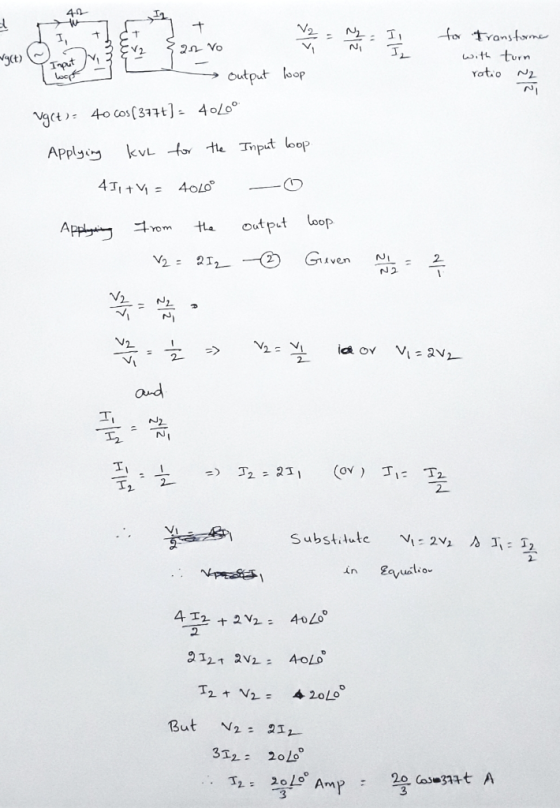 d
4Ω
I1
I2
+
+
+
Vg(t)
Input
loop
V1
V2
2Ω
Vo
-
-
-
→ output loop
V2/V1 = N2/N1 = I1/I2
for Transforme
with turn
ratio N2/N1
Vg(t) = 40 cos[377t] = 40∠0°
Applying KVL for the Input loop
4I1 + V1 = 40∠0° —①
From the output loop
V2 = 2I2 —② Given N1/N2 = 2/1
V2/V1 = N2/N1
V2/V1 = 1/2 => V2 = V1/2 or V1 = 2V2
and
I1/I2 = N2/N1
I1/I2 = 1/2 => I2 = 2I1 (or) I1 = I2/2
∴ Substitute V1 = 2V2 & I1 = I2/2
∴ in Equation
4I2/2 + 2V2 = 40∠0°
2I2 + 2V2 = 40∠0°
I2 + V2 = 20∠0°
But V2 = 2I2
3I2 = 20∠0°
∴ I2 = 20∠0°/3 Amp = 20/3 Cos377t A